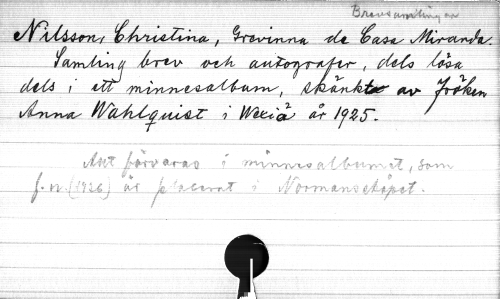 Brevsamlingar
Nilsson, Christina, Grevinna de Casa Miranda.
Samling brev och autografer, dels lösa
dels i ett minnesalbum, skänkt av fröken
Anna Wahlquist i Wexiö år 1925.
Allt förvaras i minnesalbumet, som
f.n. (1926) är placerat i Normanskåpet.